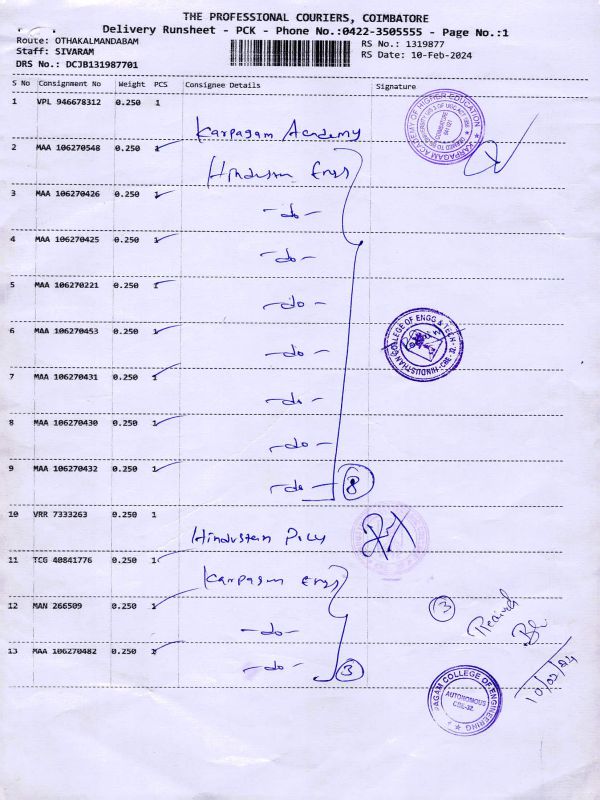 THE PROFESSIONAL COURIERS, COIMBATORE
Delivery Runsheet - PCK - Phone No.:0422-3505555 - Page No.:1
Route: OTHAKALMANDABAM
Staff: SIVARAM
DRS No.: DCJB131987701
RS No.: 1319877
RS Date: 10-Feb-2024
S No Consignment No Weight PCS Consignee Details Signature
1 VPL 946678312 0.250 1
Karpagam Academy
KARPAGAM ACADEMY OF HIGHER EDUCATION
2 MAA 106270548 0.250 1
Hindustan Engg
3 MAA 106270426 0.250 1
-do-
4 MAA 106270425 0.250 1
-do-
5 MAA 106270221 0.250 1
-do-
6 MAA 106270453 0.250 1
-do-
HINDUSTHAN COLLEGE OF ENGG & TECH CBE-32
7 MAA 106270431 0.250 1
-do-
8 MAA 106270430 0.250 1
-do-
9 MAA 106270432 0.250 1
-do- 8
10 VRR 7333263 0.250 1
Hindustan Poly
11 TCG 40841776 0.250 1
Karpagam Engg
12 MAN 266509 0.250 1
-do-
3 Received
13 MAA 106270482 0.250 1
-do- 3
10/02/24
PAGAM COLLEGE OF ENGINEERING
AUTONOMOUS
CBE-32.